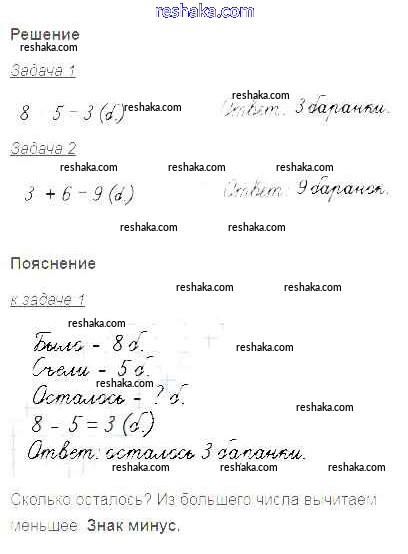 reshaka.com
Решение
reshaka.com
Задача 1
reshaka.com
8 5 - 3 (б.) reshaka.com Ответ: 3 баранки.
Задача 2
reshaka.com reshaka.com reshaka.com
3 + 6 - 9 (б.) Ответ: 9 баранок.
reshaka.com reshaka.com
Пояснение
reshaka.com reshaka.com
к задаче 1
reshaka.com
Было - 8 б.
reshaka.com
Съели - 5 б.
reshaka.com
Осталось - ? б.
8 - 5 = 3 (б.)
Ответ: осталось 3 бапанки.
reshaka.com reshaka.com reshaka.com
Сколько осталось? Из большего числа вычитаем
меньшее. Знак минус.